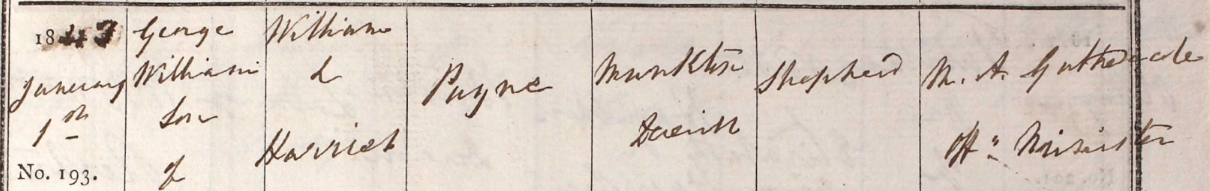 1843
January
1st
No. 193.
George
William
Son
of
William
&
Harriet
Payne
Munkton
Deverill
Shepherd
M. A. Gathercole
Offg Minister